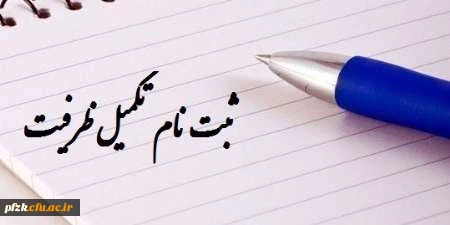 ثبت نام تکمیل ظرفیت
pfzk.cfu.ac.ir